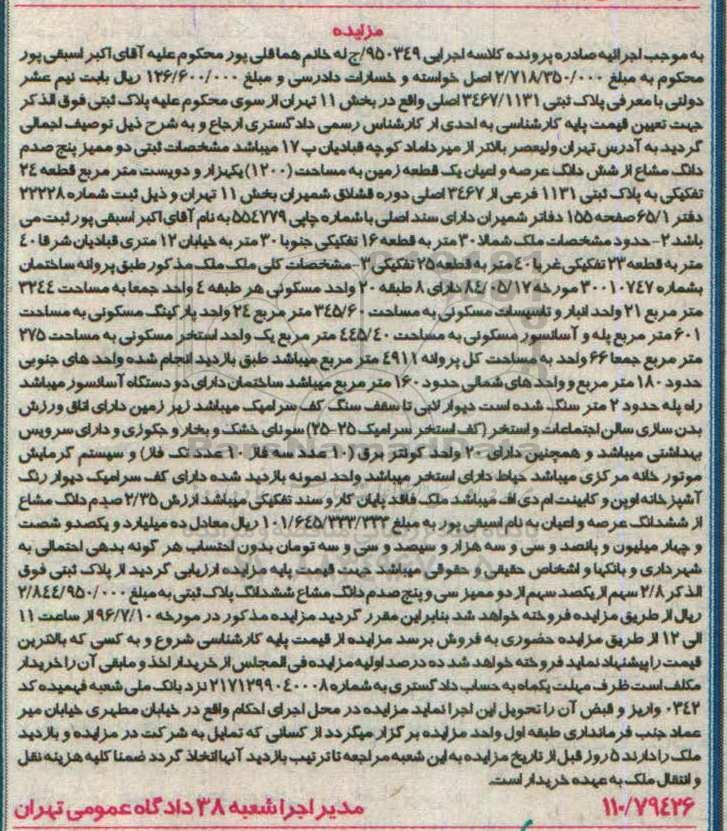 مزایده
به موجب اجرائیه صادره پرونده کلاسه اجرایی ۹۵۰۳۴۹/ج له خانم هما قلی پور محکوم علیه آقای اکبر اسبقی پور
محکوم به مبلغ ۲/۷۱۸/۳۵۰/۰۰۰ اصل خواسته و خسارات دادرسی و مبلغ ۱۳۶/۶۰۰/۰۰۰ ریال بابت نیم عشر
دولتی با معرفی پلاک ثبتی ۳۴۶۷/۱۱۳۱ اصلی واقع در بخش ۱۱ تهران از سوی محکوم علیه پلاک ثبتی فوق الذکر
جهت تعیین قیمت پایه کارشناسی به احدی از کارشناس رسمی دادگستری ارجاع و به شرح ذیل توصیف اجمالی
گردید به آدرس تهران ولیعصر بالاتر از میرداماد کوچه قبادیان پ ۱۷ میباشد مشخصات ثبتی دو ممیز پنج صدم
دانگ مشاع از شش دانگ عرصه و اعیان یک قطعه زمین به مساحت (۱۲۰۰) یکهزار و دویست متر مربع قطعه ۲۴
تفکیکی به پلاک ثبتی ۱۱۳۱ فرعی از ۳۴۶۷ اصلی دوره قشلاق شمیران بخش ۱۱ تهران و ذیل ثبت شماره ۲۲۲۲۸
دفتر ۶۵/۱ صفحه ۱۵۵ دفاتر شمیران دارای سند اصلی با شماره چاپی ۵۵۴۷۷۹ به نام آقای اکبر اسبقی پور ثبت می
باشد ۲- حدود مشخصات ملک شمالا ۳۰ متر به قطعه ۱۶ تفکیکی جنوبا ۳۰ متر به خیابان ۱۲ متری قبادیان شرقا ۴۰
متر به قطعه ۲۳ تفکیکی غربا ۴۰ متر به قطعه ۲۵ تفکیکی ۳- مشخصات کلی ملک ملک مذکور طبق پروانه ساختمان
بشماره ۳۰۰۱۰۷۴۷ مورخه ۸۴/۰۵/۱۷ دارای ۸ طبقه ۲۰ واحد مسکونی هر طبقه ۴ واحد جمعا به مساحت ۳۲۴۴
متر مربع ۲۱ واحد انبار و تاسیسات مسکونی به مساحت ۳۴۵/۶۰ متر مربع ۲۴ واحد پارکینگ مسکونی به مساحت
۶۰۱ متر مربع پله و آسانسور مسکونی به مساحت ۴۴۵/۴۰ متر مربع یک واحد استخر مسکونی به مساحت ۲۷۵
متر مربع جمعا ۶۶ واحد به مساحت کل پروانه ۴۹۱۱ متر مربع میباشد طبق بازدید انجام شده واحد های جنوبی
حدود ۱۸۰ متر مربع و واحد های شمالی حدود ۱۶۰ متر مربع میباشد ساختمان دارای دو دستگاه آسانسور میباشد
راه پله حدود ۲ متر سنگ شده است دیوار لابی تا سقف سنگ کف سرامیک میباشد زیر زمین دارای اتاق ورزش
بدن سازی سالن اجتماعات و استخر (کف استخر سرامیک ۲۵-۲۵) سونای خشک و بخار و جکوزی و دارای سرویس
بهداشتی میباشد و همچنین دارای ۲۰ واحد کولتر برق (۱۰ عدد سه فاز ۱۰ عدد تک فاز) و سیستم گرمایش
موتور خانه مرکزی میباشد حیاط دارای استخر میباشد واحد نمونه بازدید شده دارای کف سرامیک دیوار رنگ
آشپزخانه اوپن و کابینت ام دی اف میباشد ملک فاقد پایان کار و سند تفکیکی میباشد ارزش ۲/۳۵ صدم دانگ مشاع
از ششدانگ عرصه و اعیان به نام اسبقی پور به مبلغ ۱۰۱/۶۴۵/۳۳۳/۳۳۳ ریال معادل ده میلیارد و یکصدو شصت
و چهار میلیون و پانصد و سی و سه هزار و سیصد و سی و سه تومان بدون احتساب هر گونه بدهی احتمالی به
شهرداری و بانکها و اشخاص حقیقی و حقوقی میباشد جهت قیمت پایه مزایده ارزیابی گردید از پلاک ثبتی فوق
الذکر ۲/۸ سهم از یکصد سهم از دو ممیز سی و پنج صدم دانگ مشاع ششدانگ پلاک ثبتی به مبلغ ۲/۸۴۴/۹۵۰/۰۰۰
ریال از طریق مزایده فروخته خواهد شد بنابراین مقرر گردید مزایده مذکور در مورخه ۹۶/۷/۱۰ از ساعت ۱۱
الی ۱۲ از طریق مزایده حضوری به فروش برسد مزایده از قیمت پایه کارشناسی شروع و به کسی که بالاترین
قیمت را پیشنهاد نماید فروخته خواهد شد ده درصد اولیه مزایده فی المجلس از خریدار اخذ و مابقی آن را خریدار
مکلف است ظرف مهلت یکماه به حساب دادگستری به شماره ۲۱۷۱۲۹۹۰۴۰۰۰۸ نزد بانک ملی شعبه فهمیده کد
۰۳۴۲ واریز و قبض آن را تحویل این اجرا نماید مزایده در محل اجرای احکام واقع در خیابان مطهری خیابان میر
عماد جنب فرمانداری طبقه اول واحد مزایده برگزار میگردد از کسانی که تمایل به شرکت در مزایده و بازدید
ملک را دارند ۵ روز قبل از تاریخ مزایده به این شعبه مراجعه تا ترتیب بازدید آنها اتخاذ گردد ضمنا کلیه هزینه نقل
و انتقال ملک به عهده خریدار است.
۱۱۰/۷۹۴۳۶ مدیر اجرا شعبه ۳۸ دادگاه عمومی تهران